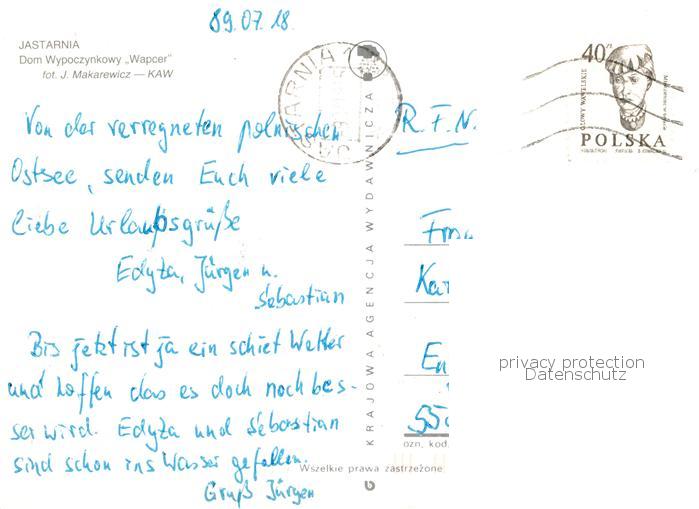 89.07.18.
JASTARNIA
Dom Wypoczynkowy „Wapcer"
fot. J. Makarewicz — KAW
Von der verregneten polnischen
Ostsee, senden Euch viele
liebe Urlaubsgrüße
Edyta, Jürgen u.
Sebastian
Bis jetzt ist ja ein schiet Wetter
und hoffen das es doch noch bes-
ser wird. Edyta und Sebastian
sind schon ins Wasser gefallen.
Gruß Jürgen
KRAJOWA AGENCJA WYDAWNICZA
JASTARNIA 1
40 zł
GŁOWY WAWELSKIE
POLSKA
R.F.N.
Frau
Ka
En
privacy protection
Datenschutz
55
ozn. kod.
Wszelkie prawa zastrzeżone